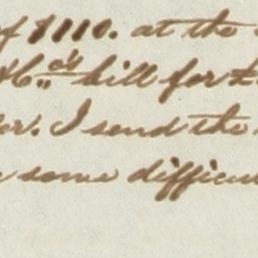 of $1110. at the
bill for £
er. I send the
some difficul